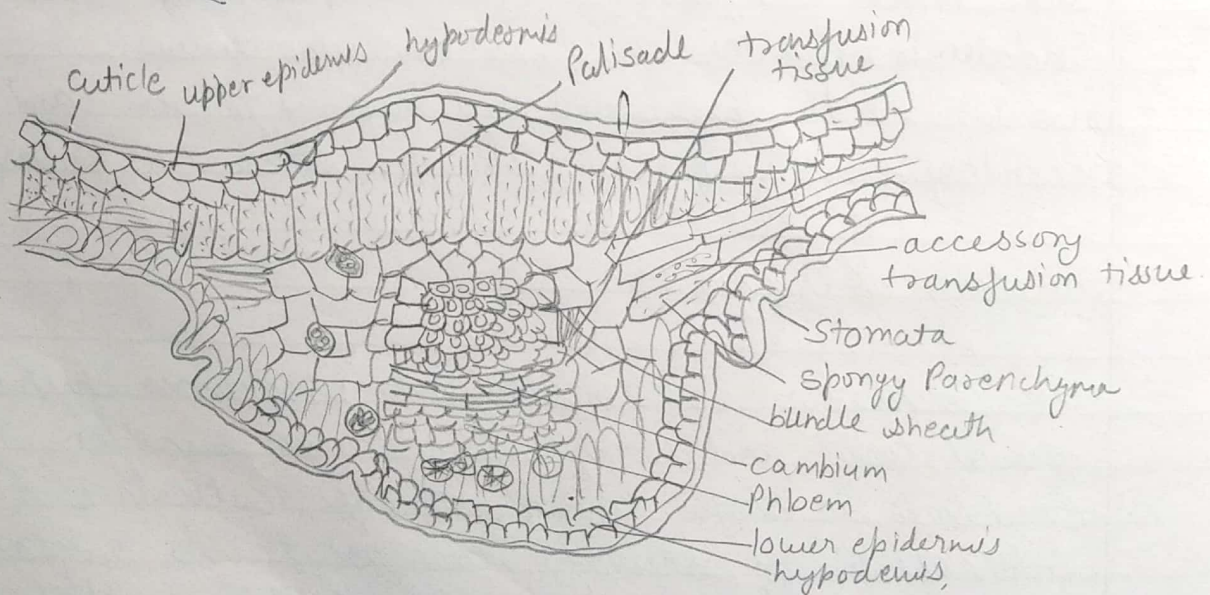 Cuticle
upper epidermis
hypodermis
Palisade
transfusion
tissue
accessory
transfusion tissue.
Stomata
Spongy Parenchyma
bundle sheath
cambium
Phloem
lower epidermis
hypodemis,